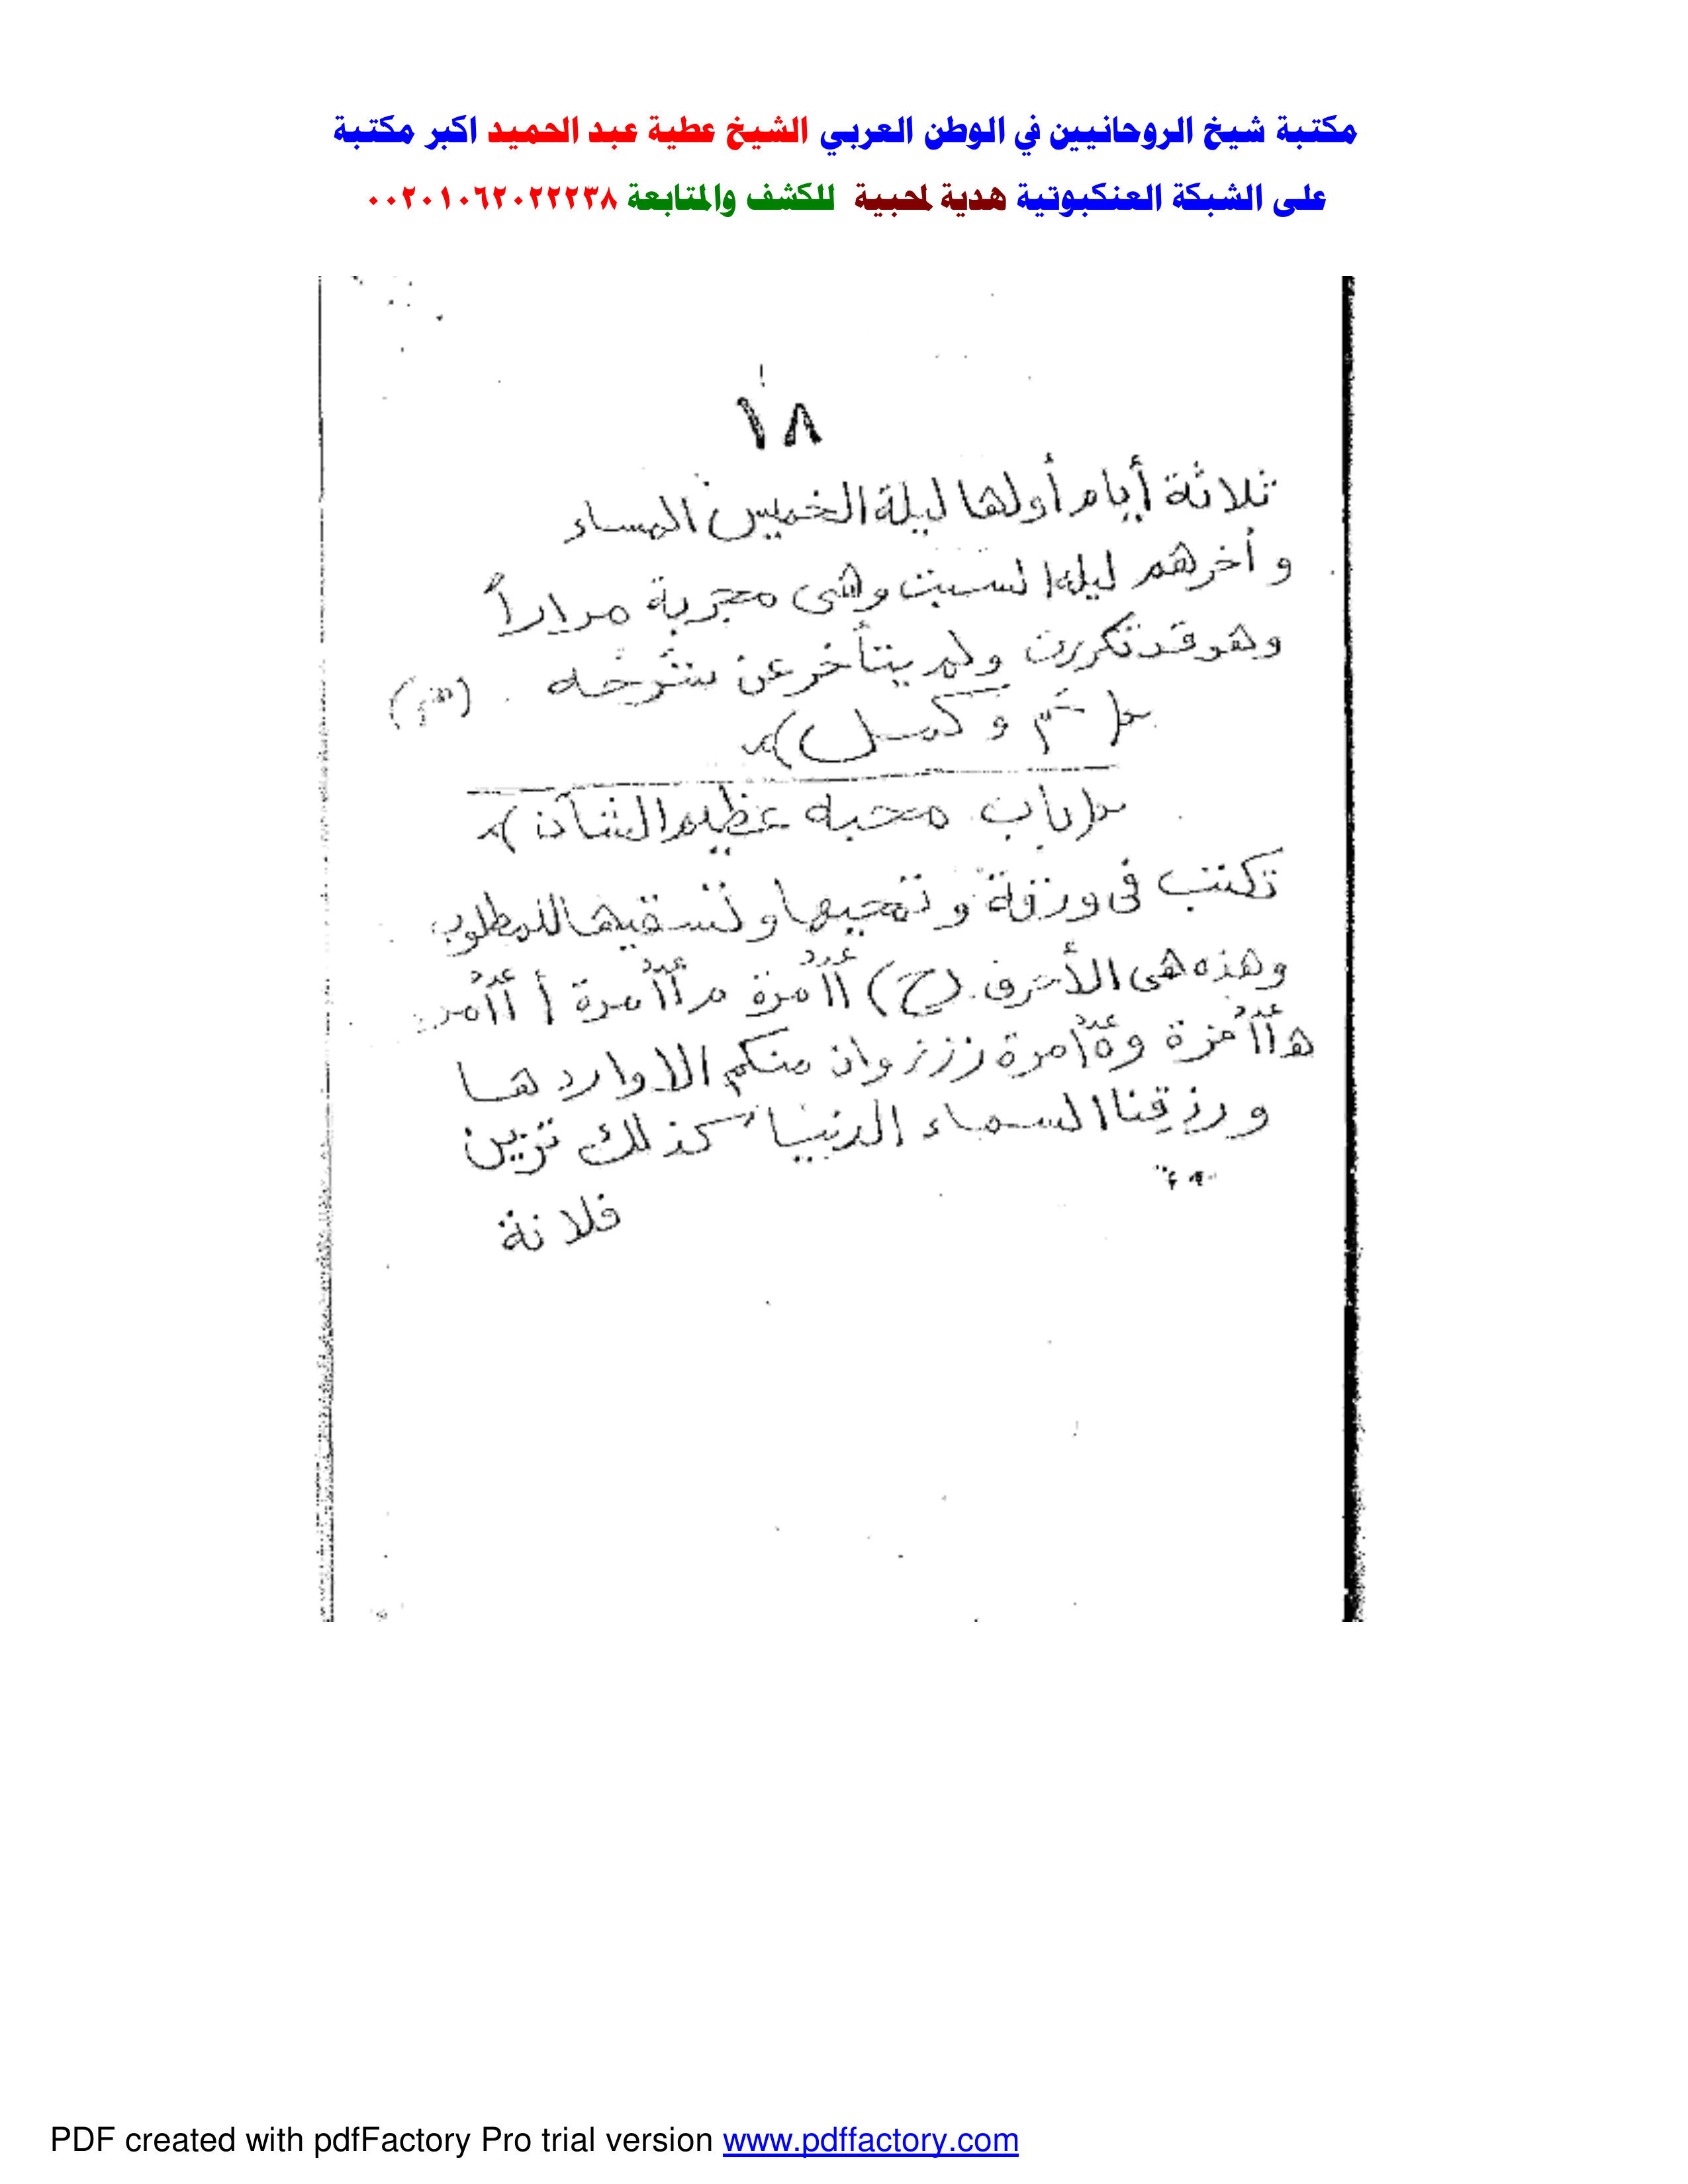 مكتبة شيخ الروحانيين في الوطن العربي الشيخ عطية عبد الحميد اكبر مكتبة
على الشبكة العنكبوتية هدية لمحبية للكشف والمتابعة ٠٠٢٠١٠٦٢٠٢٢٢٣٨
١٨
ثلاثة أيام أولها ليلة الخميس المساء
وأخرهم ليلة السبت وهى مجربة مراراً
وهو قد تكررت ولم يتأخر عن
(تم وكمل)
(باب محبه عظيم الشأن)
تكتب فى ورقة وتمحيها وتسقيها للمطلوب
وهذه هى الأحرف (ح) ١١١ مرة م ١١١ مرة أ ١١١ مر
عدد عدد عدد
ه ١١١ مرة و ١٥ مرة ززز وان منكم الا واردها
عدد عدد
ورزقنا السماء الدنيا كذلك تزين
فلانة
PDF created with pdfFactory Pro trial version www.pdffactory.com